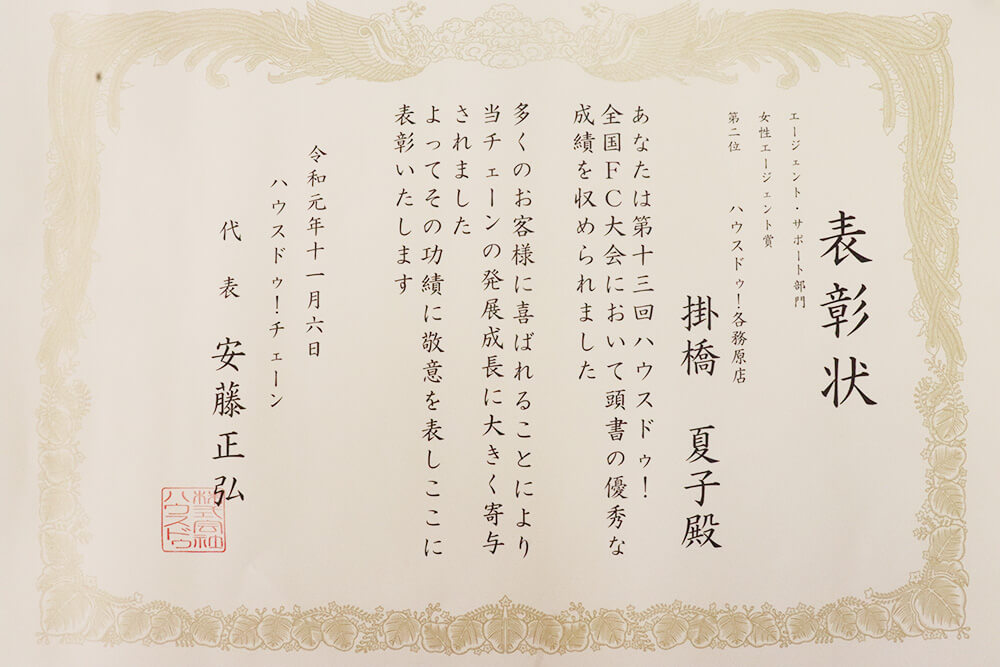 表彰状
エージェント・サポート部門
女性エージェント賞
第二位 ハウスドゥ!各務原店
掛橋 夏子殿
あなたは第十三回ハウスドゥ!
全国FC大会において頭書の優秀な
成績を収められました
多くのお客様に喜ばれることにより
当チェーンの発展成長に大きく寄与
されました
よってその功績に敬意を表しここに
表彰いたします
令和元年十一月六日
ハウスドゥ!チェーン
代表 安藤正弘
株式会社
ハウスドゥ